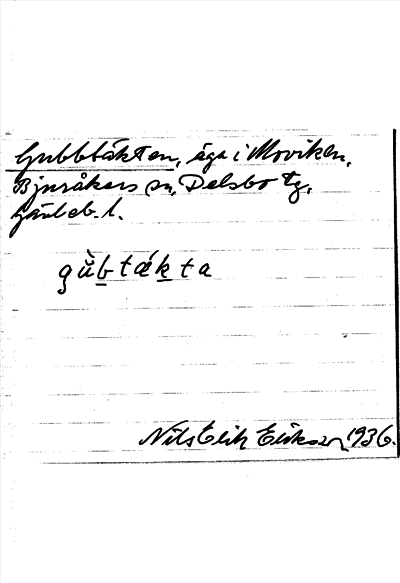 Gubbtäkten, äga i Moviken,
Bjuråkers sn, Delsbo tg,
Gävleb. l.
gu̇̀btǽkta
Nils Erik Erikson, 1936.